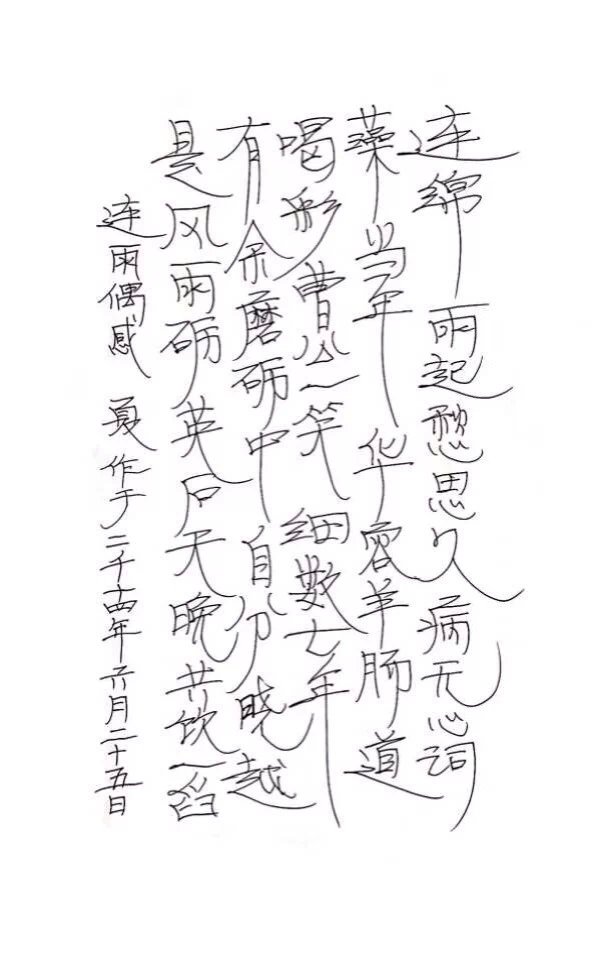 连绵雨起愁思久病无心词
藻当年华容羊肠道
喝彩曹公一笑细数七年
有余磨砺中自分晓越
是风雨砺英后天晚共饮一
连雨偶感 夏作于二千十四年六月二十五日